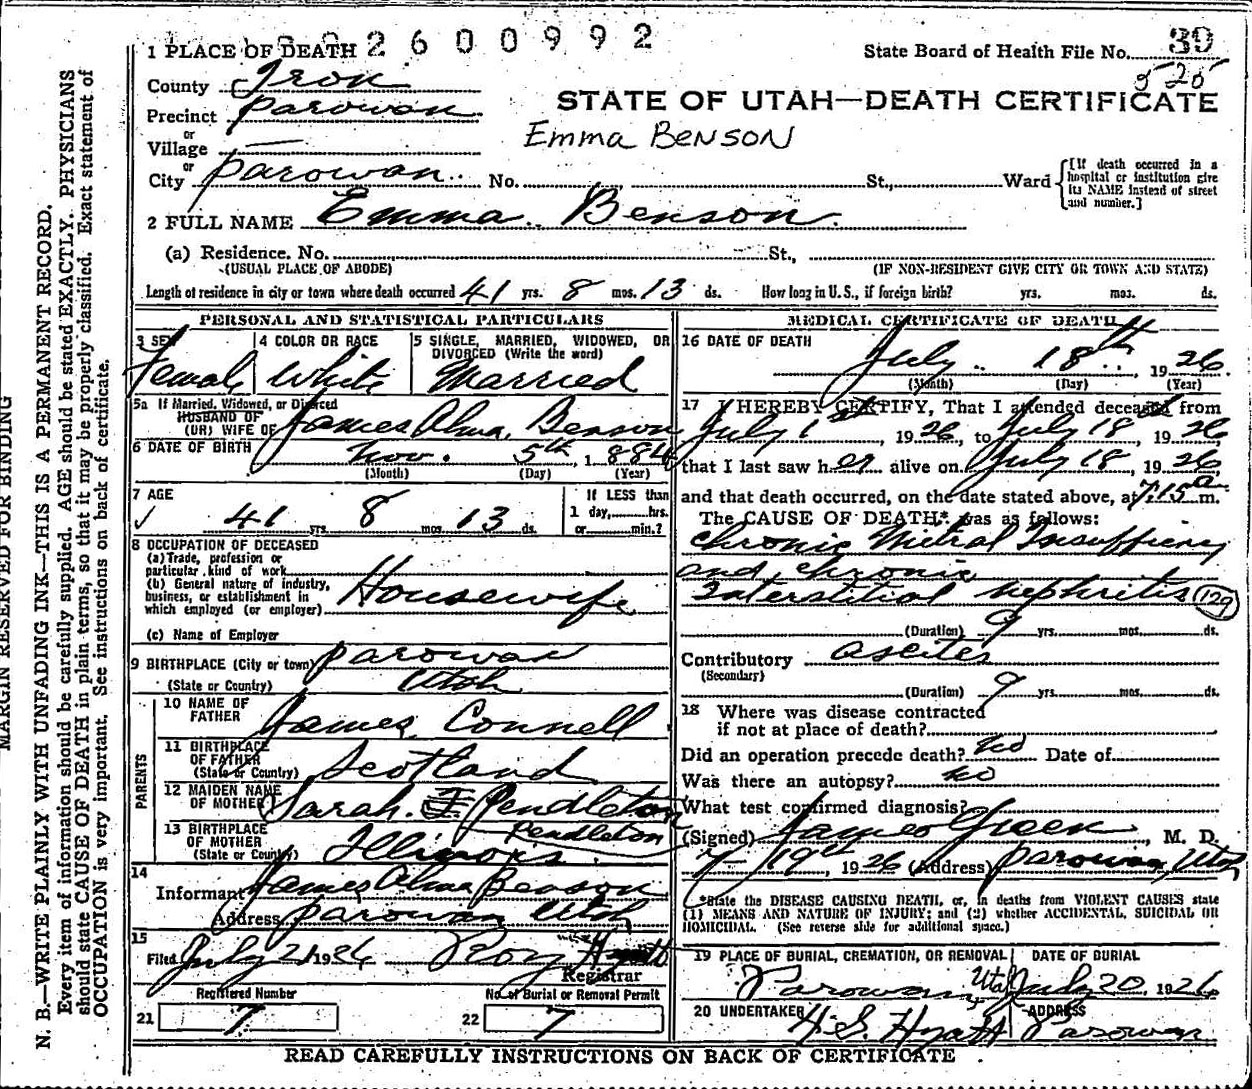 2600992
1 PLACE OF DEATH
State Board of Health File No. 39
525
County Iron
STATE OF UTAH—DEATH CERTIFICATE
Precinct Parowan
Emma BENSON
or
Village —
or
City Parowan No. St., Ward
[If death occurred in a hospital or institution give its NAME instead of street and number.]
2 FULL NAME Emma Benson
(a) Residence. No. St.,
(USUAL PLACE OF ABODE) (IF NON-RESIDENT GIVE CITY OR TOWN AND STATE)
Length of residence in city or town where death occurred 41 yrs. 8 mos. 13 ds. How long in U.S., if foreign birth? yrs. mos. ds.
PERSONAL AND STATISTICAL PARTICULARS
3 SEX Female
4 COLOR OR RACE White
5 SINGLE, MARRIED, WIDOWED, OR DIVORCED (Write the word) Married
5a If Married, Widowed, or Divorced
HUSBAND OF
(OR) WIFE OF James Alma Benson
6 DATE OF BIRTH Nov. 5th, 1884
(Month) (Day) (Year)
7 AGE 41 yrs. 8 mos. 13 ds.
If LESS than
1 day, hrs.
or min.?
8 OCCUPATION OF DECEASED
(a) Trade, profession or
particular kind of work
(b) General nature of industry,
business, or establishment in
which employed (or employer) Housewife
(c) Name of Employer
9 BIRTHPLACE (City or town) Parowan
(State or Country) Utah
PARENTS
10 NAME OF FATHER James Connell
11 BIRTHPLACE OF FATHER (State or Country) Scotland
12 MAIDEN NAME OF MOTHER Sarah Pendleton
Pendleton
13 BIRTHPLACE OF MOTHER (State or Country) Illinois.
14
Informant James Alma Benson
Address Parowan Utah
15
Filed July 21 1926 Roy Hyatt
Registrar
Registered Number No. of Burial or Removal Permit
21 7 22 7
MEDICAL CERTIFICATE OF DEATH
16 DATE OF DEATH
July 18th, 1926
(Month) (Day) (Year)
17 I HEREBY CERTIFY, That I attended deceased from
July 1st, 1926, to July 18, 1926
that I last saw her alive on July 18, 1926,
and that death occurred, on the date stated above, at 7:15 a m.
The CAUSE OF DEATH* was as follows:
Chronic Mitral Insufficiency
and chronic
Interstitial Nephritis (129)
(Duration) 9 yrs. mos. ds.
Contributory ascites
(Secondary)
(Duration) 9 yrs. mos. ds.
18 Where was disease contracted
if not at place of death?
Did an operation precede death? No Date of
Was there an autopsy? No
What test confirmed diagnosis?
(Signed) James Green, M. D.
7 - 19th 1926 (Address) Parowan, Utah
*State the DISEASE CAUSING DEATH, or, in deaths from VIOLENT CAUSES state
(1) MEANS AND NATURE OF INJURY; and (2) whether ACCIDENTAL, SUICIDAL OR
HOMICIDAL. (See reverse side for additional space.)
19 PLACE OF BURIAL, CREMATION, OR REMOVAL DATE OF BURIAL
Parowan Utah July 20, 1926
20 UNDERTAKER ADDRESS
H. S. Hyatt Parowan
READ CAREFULLY INSTRUCTIONS ON BACK OF CERTIFICATE
MARGIN RESERVED FOR BINDING
N. B.—WRITE PLAINLY WITH UNFADING INK—THIS IS A PERMANENT RECORD.
Every item of information should be carefully supplied. AGE should be stated EXACTLY. PHYSICIANS
should state CAUSE OF DEATH in plain terms, so that it may be properly classified. Exact statement of
OCCUPATION is very important. See instructions on back of certificate.